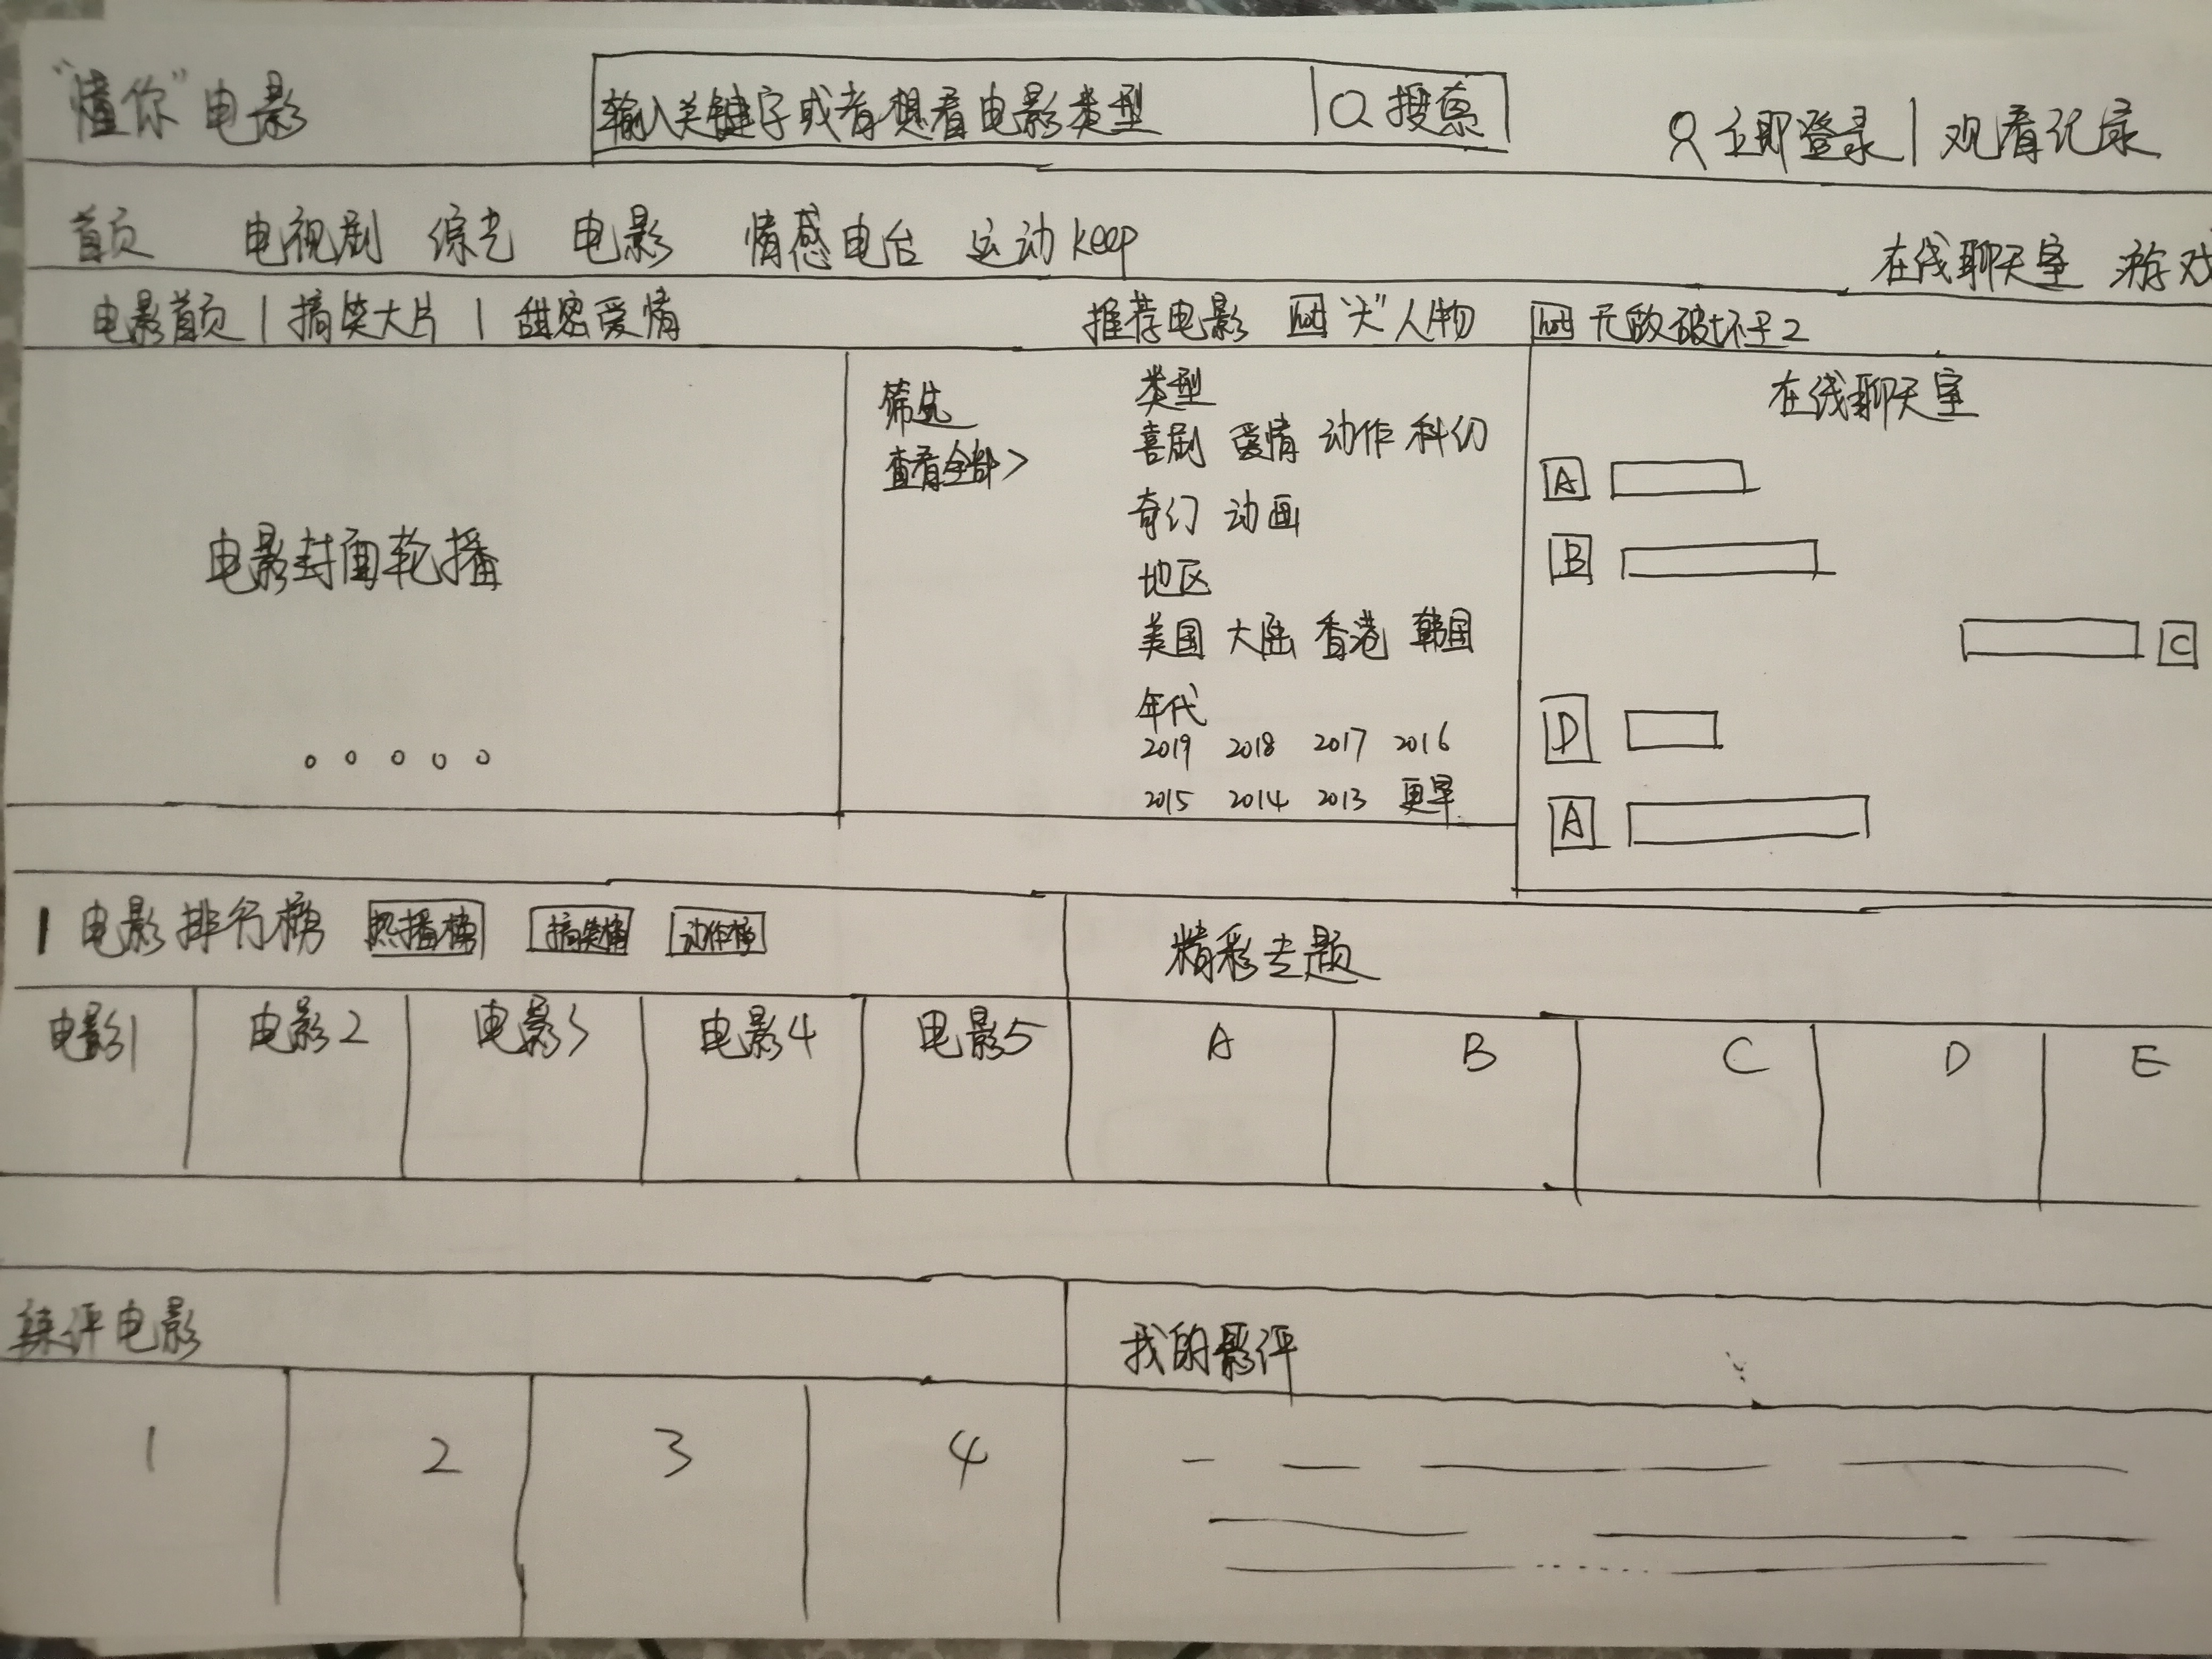 “懂你”电影
输入关键字或者想看电影类型
搜索
立即登录 | 观看记录
首页 电视剧 综艺 电影 情感电台 运动keep
在线聊天室 游戏
电影首页 | 搞笑大片 | 甜密爱情
推荐电影 hot “大”人物 hot 无敌破坏王2
电影封面轮播
筛选
查看全部>
类型
喜剧 爱情 动作 科幻
奇幻 动画
地区
美国 大陆 香港 韩国
年代
2019 2018 2017 2016
2015 2014 2013 更早
在线聊天室
A
B
C
D
A
电影排行榜 热播榜 搞笑榜 动作榜
精彩专题
电影1 电影2 电影3 电影4 电影5
A B C D E
辣评电影
我的影评
1 2 3 4